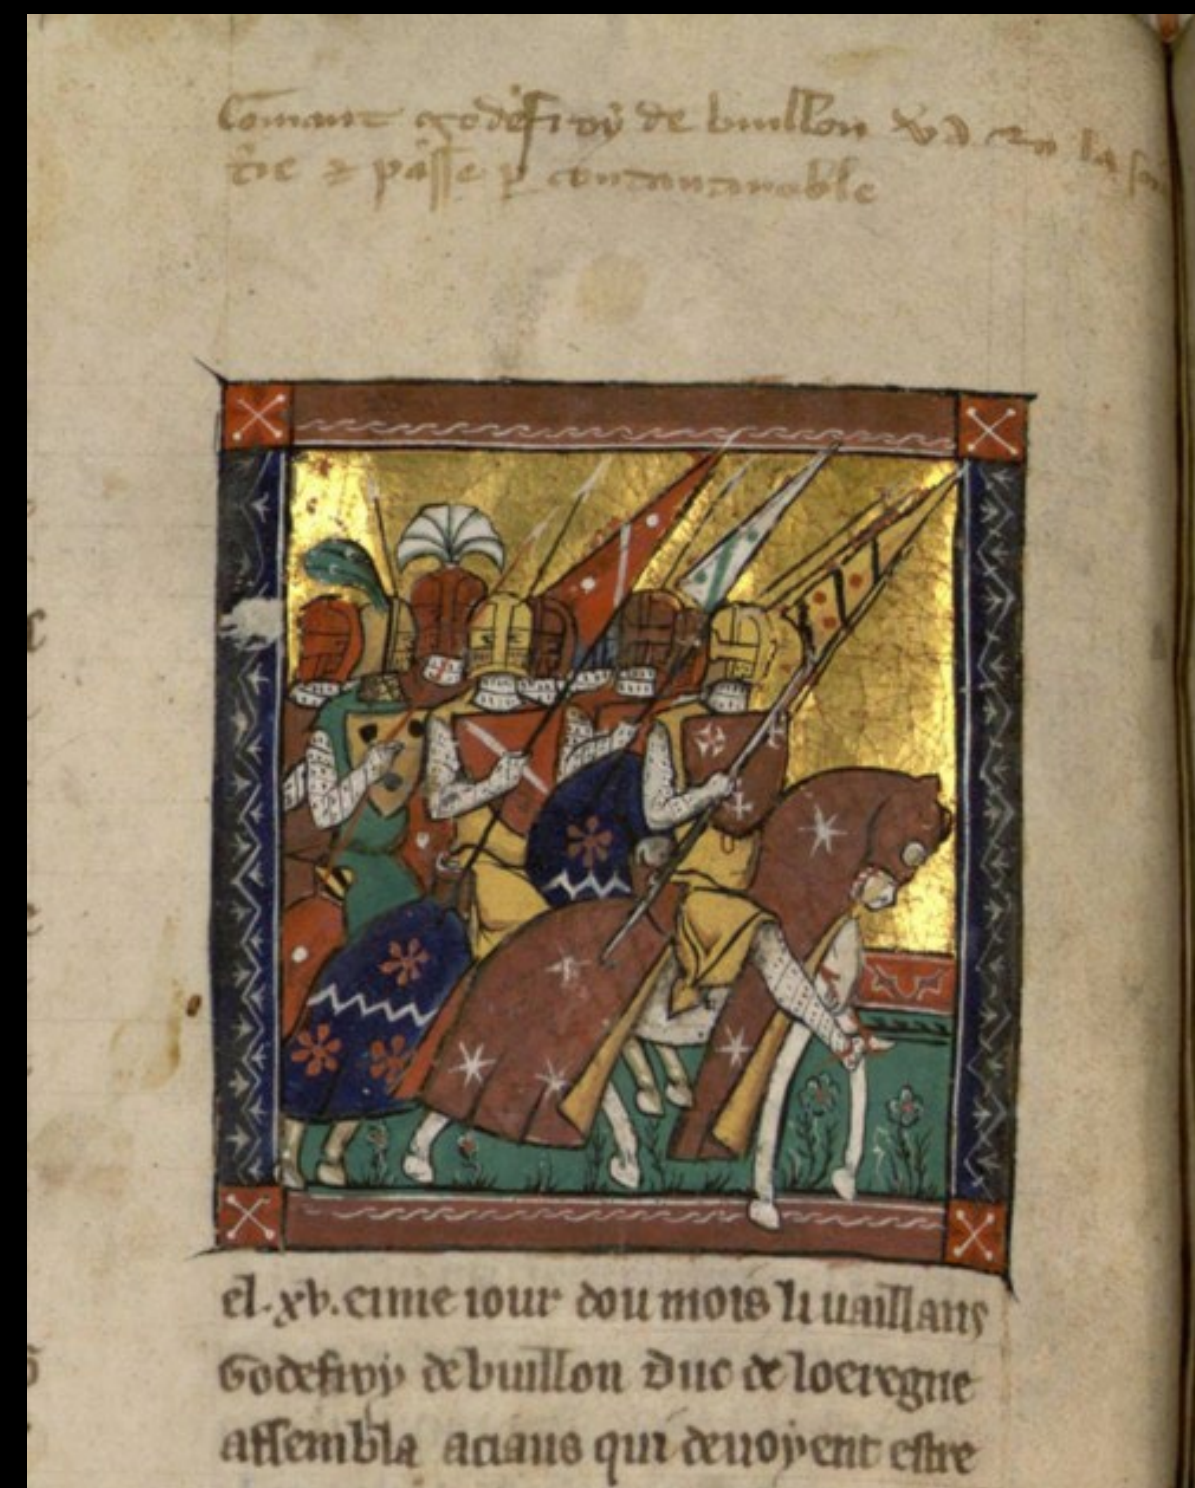 Comant godefroy de buillon va en la
t̃re ⁊ passe p̱ coutantinoble
el .xv. cime iour dou mois li uaillans
Godefroy de buillon Duc de loeregne
assembla aciaus qui deuoyent estre